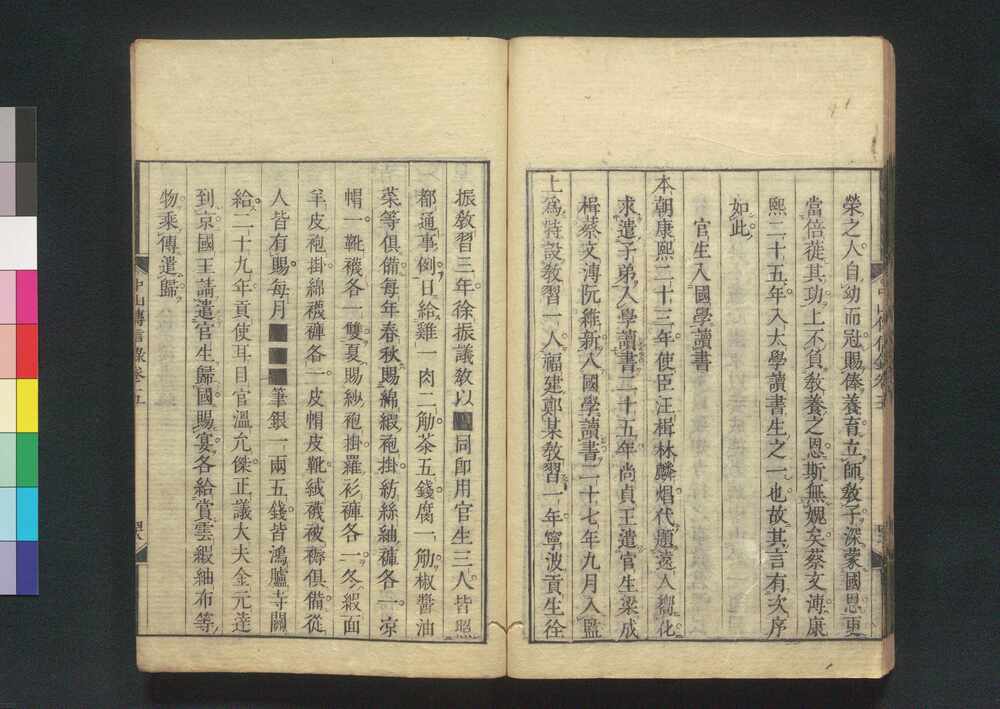 榮之人自幼而冠賜俸養育立師敎子深蒙國恩更
當倍蓰其功上不負敎養之恩斯無媿矣蔡文溥康
熙二十五年入太學讀書生之一也故其言有次序
如此
官生入國學讀書
本朝康熙二十三年使臣汪楫林麟焻代題遠人嚮化
求遣子弟入學讀書二十五年尚貞王遣官生梁成
楫蔡文溥阮維新入國學讀書二十七年九月入監
上爲特設敎習一人福建鄭某敎習一年寧波貢生徐
振敎習三年徐振議敎以同卽用官生三人皆照
都通事例日給雞一肉二觔茶五錢腐一觔椒醬油
菜等俱備每年春秋賜綿緞袍掛紡絲紬褲各一凉
帽一靴襪各一雙夏賜紗袍掛羅衫褲各一冬緞面
羊皮袍掛綿襪褲各一皮帽皮靴絨襪被褥俱備從
人皆有賜每月筆銀一兩五錢皆鴻臚寺關
給二十九年貢使耳目官溫允傑正議大夫金元達
到京國王請遣官生歸國賜宴各給賞雲緞紬布等
物乘傳遣歸
中山傳信錄卷五